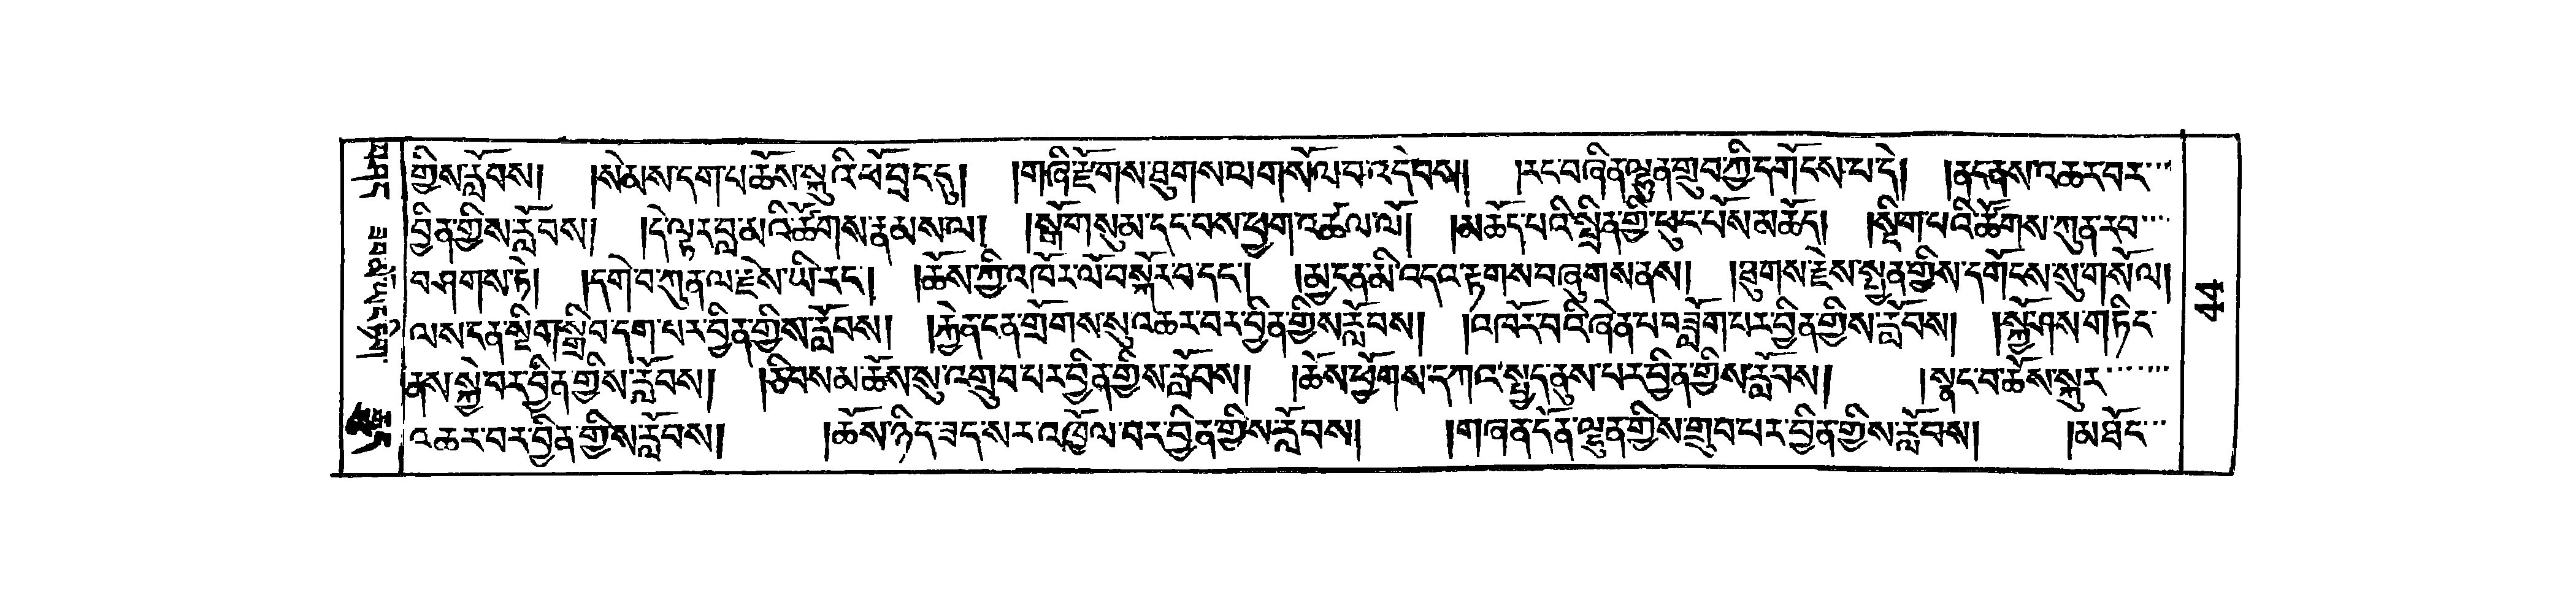 གྱིས་རློབས། །སེམས་དག་པ་ཆོས་སྐུའི་ཕོ་བྲང་དུ། །གཞི་རྫོགས་ཐུགས་ལ་གསོལ་བ་འདེབས། །རང་བཞིན་ལྷུན་གྲུབ་ཀྱི་དགོངས་པ་དེ། །ནང་ནས་འཆར་བར་
བྱིན་གྱིས་རློབས། །དེ་ལྟར་བླ་མའི་ཚོགས་རྣམས་ལ། །སྒོ་གསུམ་དང་བས་ཕྱག་འཚལ་ལོ། །མཆོད་པའི་སྤྲིན་གྱི་ཕུང་པོས་མཆོད། །སྡིག་པའི་ཚོགས་ཀུན་རབ་
བཤགས་ཏེ། །དགེ་བ་ཀུན་ལ་རྗེས་ཡི་རང་། །ཆོས་ཀྱི་འཁོར་ལོ་བསྐོར་བ་དང་། །མྱ་ངན་མི་འདའ་རྟག་བཞུགས་ནས། །ཐུགས་རྗེས་སྤྱན་གྱིས་དགོངས་སུ་གསོལ།
ལས་ངན་སྡིག་སྒྲིབ་དག་པར་བྱིན་གྱིས་རློབས། །རྐྱེན་ངན་གྲོགས་སུ་འཆར་བར་བྱིན་གྱིས་རློབས། །འཁོར་བའི་ཞེན་པ་བཟློག་པར་བྱིན་གྱིས་རློབས། །སྐྱོ་ཤས་གཏིང་
ནས་སྐྱེ་བར་བྱིན་གྱིས་རློབས། །ཅི་བྱས་མ་ཆོས་སུ་འགྲུབ་པར་བྱིན་གྱིས་རློབས། །ཆོས་ཕྱོགས་དཀའ་སྤྱད་ནུས་པར་བྱིན་གྱིས་རློབས། །སྣང་བ་ཆོས་སྐུར་
འཆར་བར་བྱིན་གྱིས་རློབས། །ཆོས་ཉིད་ཟད་སར་འཁྱོལ་བར་བྱིན་གྱིས་རློབས། །གཞན་དོན་ལྷུན་གྱིས་གྲུབ་པར་བྱིན་གྱིས་རློབས། །མཐོང་